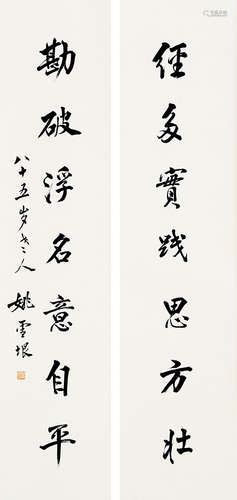 經多實踐思方壮
勘破浮名意自平
八十五岁老人
姚雪垠